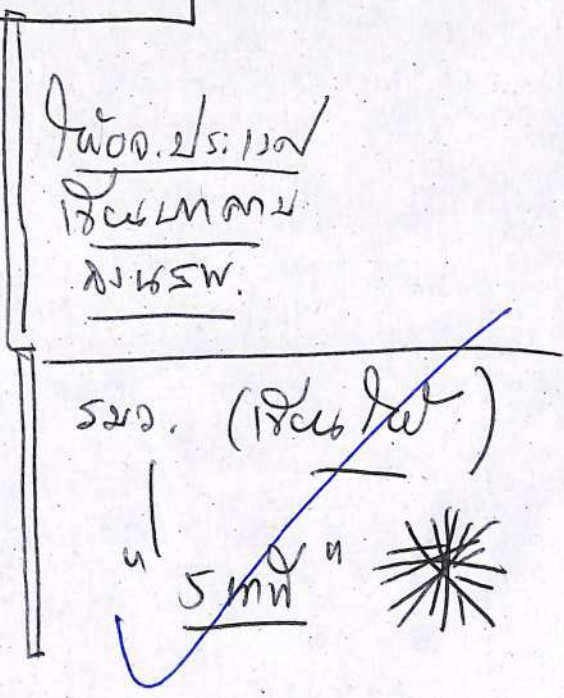 ให้อจ.ประเวศ
เขียนบทความ
ลงนสพ.
รมว. (เขียนให้)
"5 นาที"